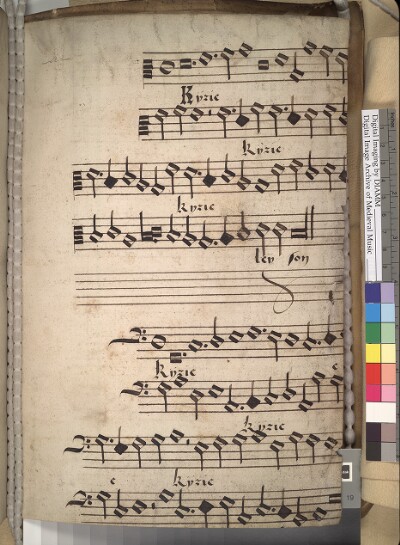 Kyrie
Kyrie
Kyrie
ley son
Kyrie
e
Kyrie
e Kyrie
Digital Imaging by DIAMM
Digital Image Archive of Medieval Music